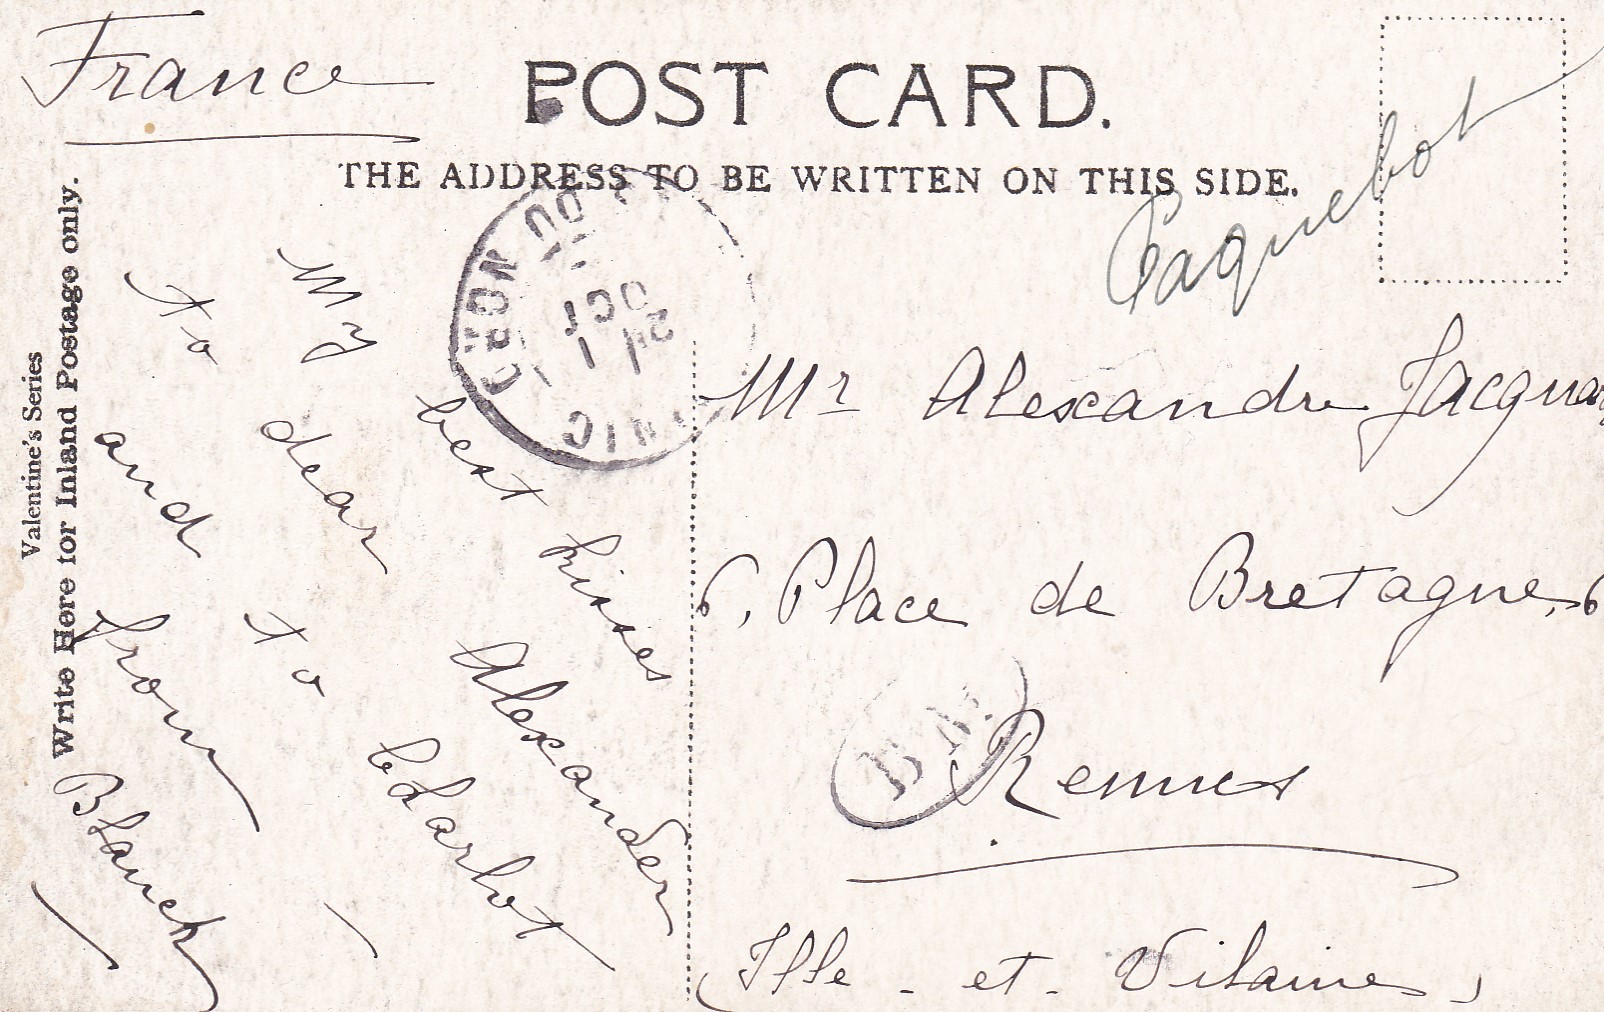 France
POST CARD.
THE ADDRESS TO BE WRITTEN ON THIS SIDE.
Paquebot
Valentine's Series
Write Here for Inland Postage only.
My best kisses
to dear Alexander
and to Charlot
from
Blanch
21
OCT
B.M.
Mr Alexandre
6, Place de Bretagne, 6
Rennes
(Ille-et-Vilaine)